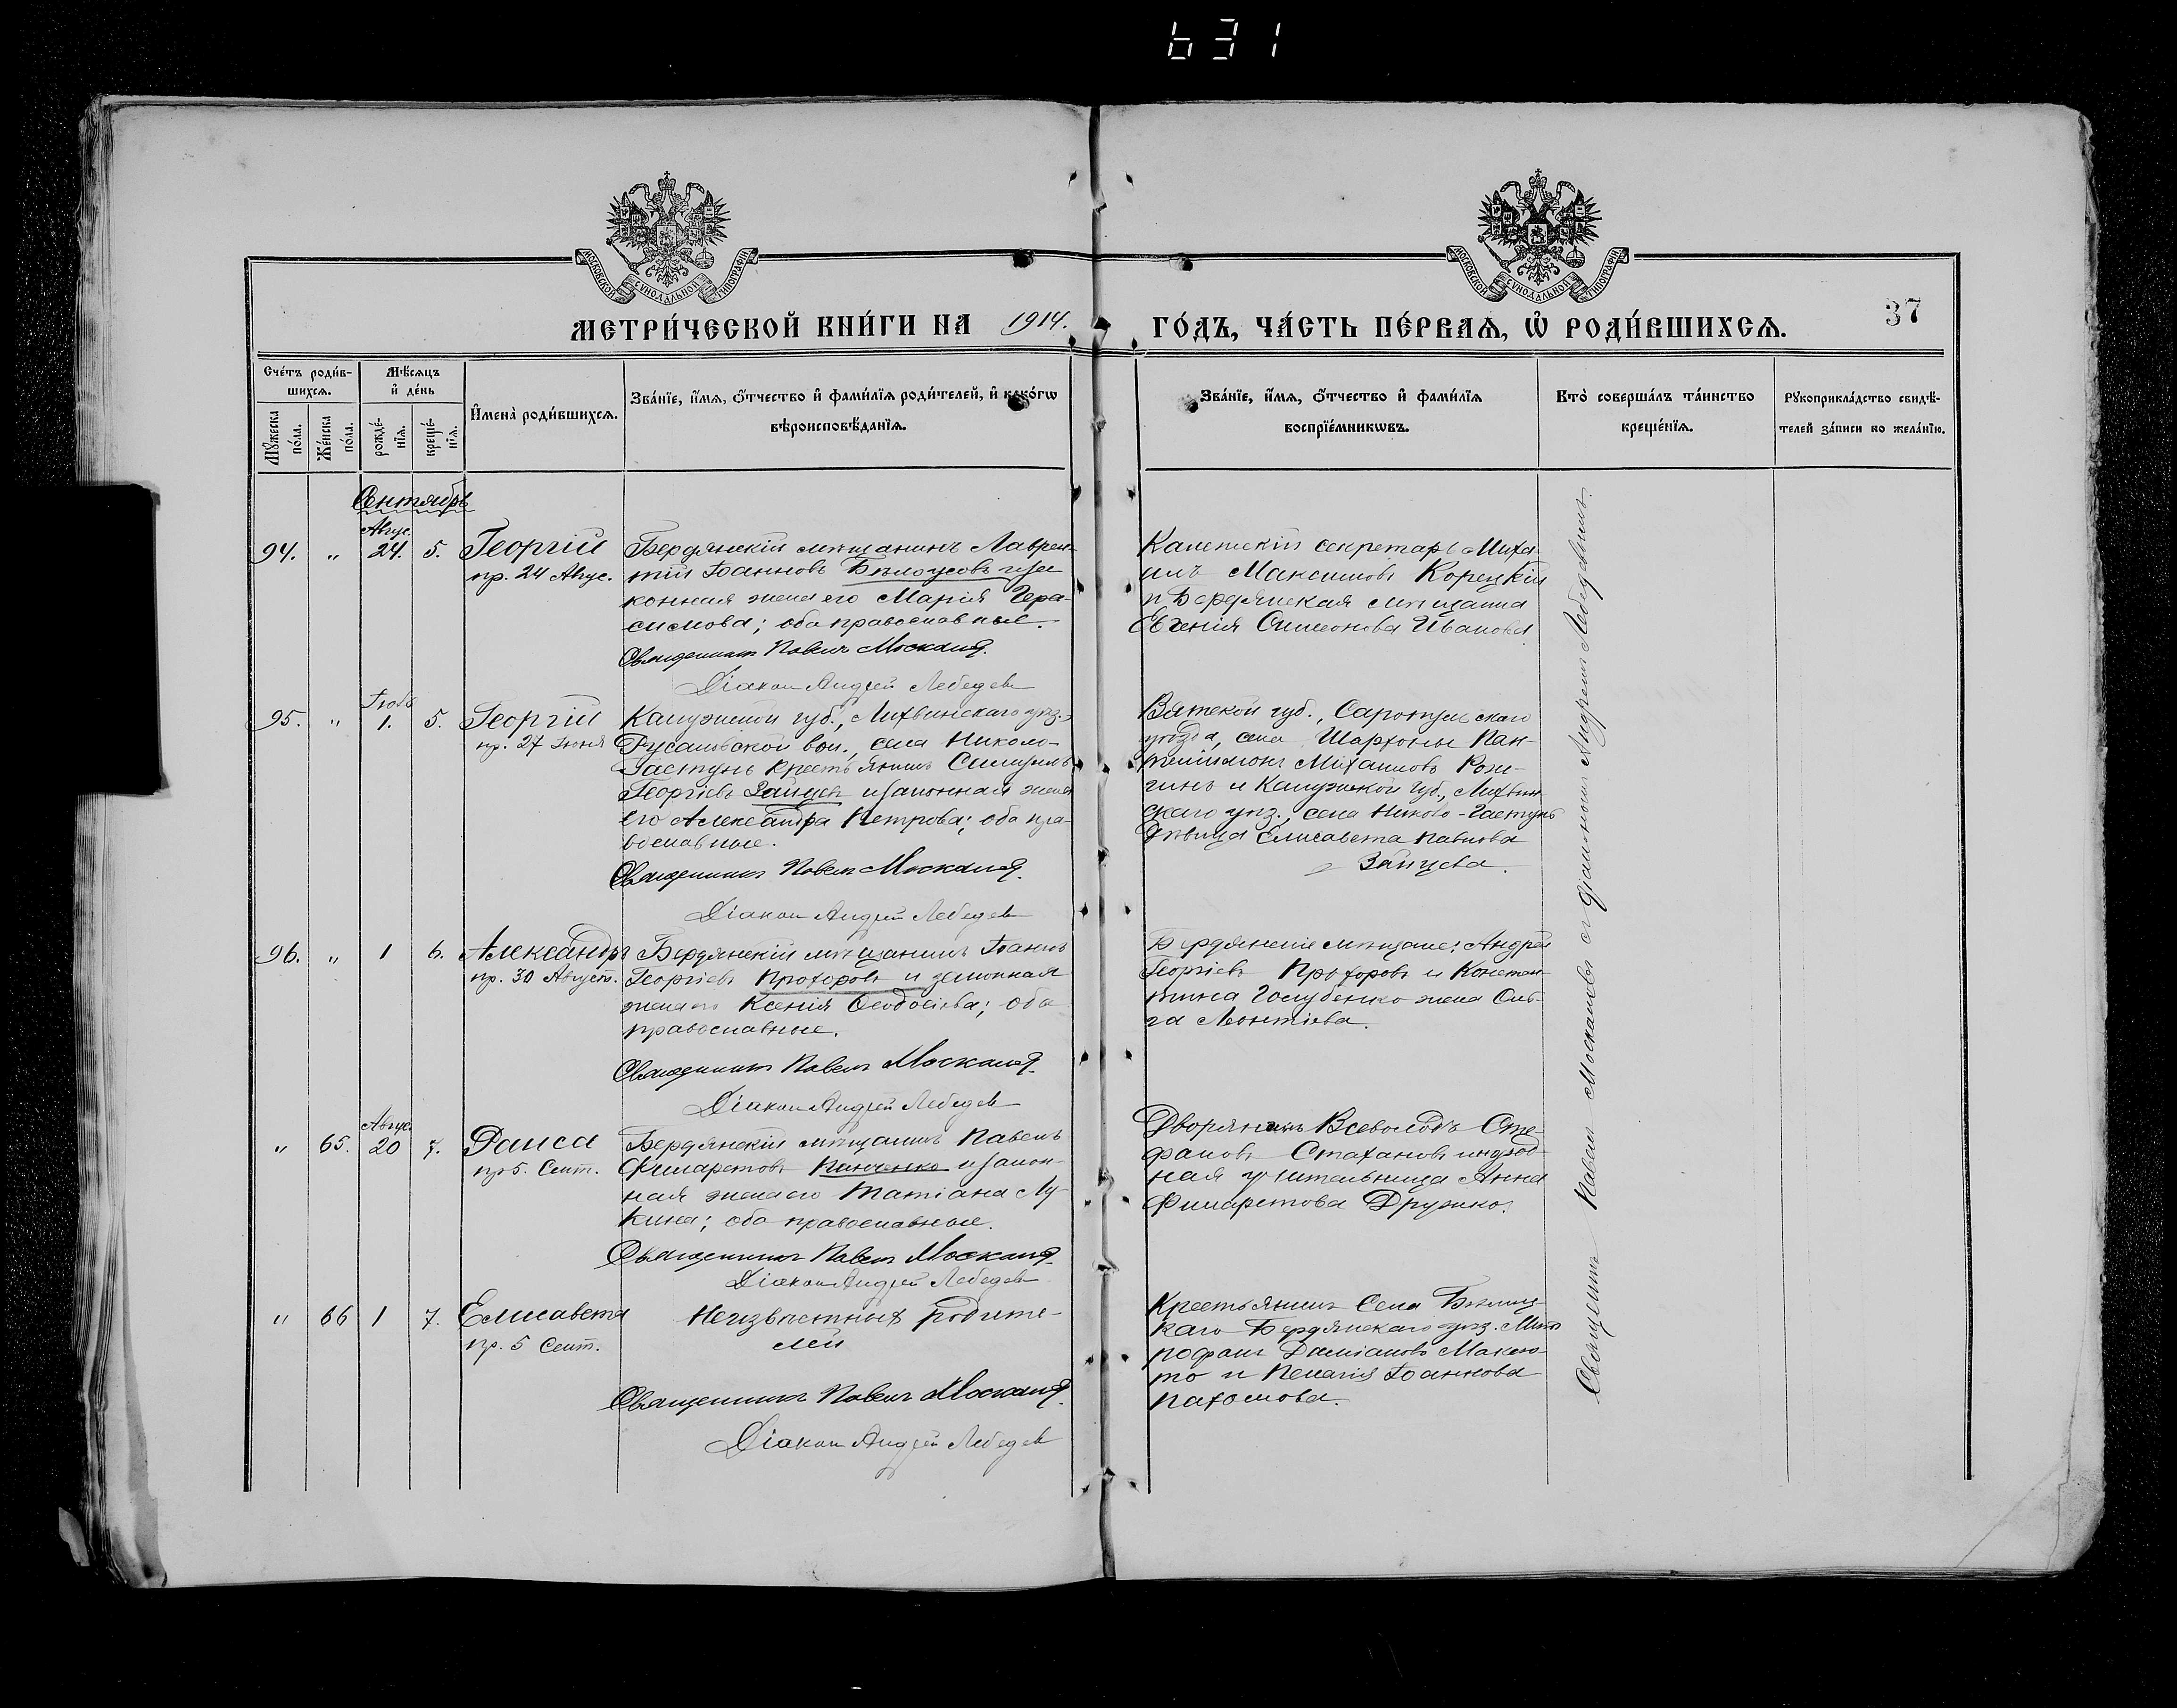 631
МОСКОВСКОЙ СѴНОДАЛЬНОЙ ТИПОГРАФІИ
МОСКОВСКОЙ СѴНОДАЛЬНОЙ ТИПОГРАФІИ
МЕТРИ́ЧЕСКОЙ КНИ́ГИ НА 1914. ГО́ДЪ, ЧА́СТЬ ПЕ́РВАѦ, Ѽ РОДИ́ВШИХСѦ.
37
Счéтъ роди́в-
шихсѧ.
Мꙋжеска
по́ла.
Же́нска
по́ла.
Мѣ́сѧцъ
и҆ де́нь
рожде́-
нїѧ.
креще́-
нїѧ.
И҆мена̀ роди́вшихсѧ.
Зва́нїе, и҆́мѧ, о҆́тчество и҆ фами́лїѧ роди́телей, и҆ како́гѡ
вѣроисповѣ́данїѧ.
Зва́нїе, и҆́мѧ, о҆́тчество и҆ фами́лїѧ
воспрїе́мникѡвъ.
Кто̀ соверша́лъ та́инство
креще́нїѧ.
Рꙋкоприкла́дство свидѣ́-
телей за́писи по жела́нїю.
Сентябрь
94. " Авгус. 24. 5. Георгій
пр. 24 Авгус.
Бердянскій мѣщанинъ Лаврен-
тій Іоанновъ Бѣлоусовъ и за
конная жена его Марія Гера-
симова; оба православные.
Священникъ Павелъ Москалев.
Діаконъ Андрей Лебедев
Колежскій секретарь Миха-
илъ Максимовъ Корецкій
и Бердянская мѣщанка
Евгенія Симеонова Иванова
95. " Іюль 1. 5. Георгій
пр. 27 Іюня
Калужской губ., Лихвинскаго уѣз.,
Русановской вол., села Николо-
Гастунь крестьянинъ Самуилъ
Георгіевъ Зайцев и законная жена
его Александра Петрова; оба пра-
вославные.
Священникъ Павелъ Москалев.
Діаконъ Андрей Лебедев
Вятской губ., Сарапульскаго
уѣзда, села Шарканы Пан-
телеимонъ Михаиловъ
и Калужской губ., Лихвин-
скаго уѣз., села Николо-Гастунь
дѣвица Елисавета Павлова
Зайцева.
96. " 1 6. Александръ
пр. 30 Август.
Бердянскій мѣщанинъ Іоаннъ
Георгіевъ Прохоровъ и законная
жена его Ксенія Феодосіева; оба
православные.
Священникъ Павелъ Москалев.
Діаконъ Андрей Лебедев
Бердянскіе мѣщане: Андрей
Георгіевъ Прохоровъ и Констан-
тина Голубенко жена Оль-
га Леонтіева.
" 65. Авгус. 20 7. Раиса
пр 5. Сент.
Бердянскій мѣщанинъ Павелъ
Филаретовъ Пинченко и закон-
ная жена его Татіана Лу-
кина; оба православные.
Священникъ Павелъ Москалев.
Діаконъ Андрей Лебедев
Дворянинъ Всеволодъ Сте-
фановъ Стахановъ и народ-
ная учительница Анна
Филаретова Дружко.
" 66 1 7. Елисавета
пр. 5 Сент.
Неизвѣстныхъ родите-
лей
Священникъ Павелъ Москалев.
Діаконъ Андрей Лебедев
Крестьянинъ села
Бердянскаго уѣз. Мит-
рофанъ Даміановъ
и Пелагія Іоаннова
Пахомова.
Священникъ Павелъ Москалевъ съ діакономъ Андреемъ Лебедевымъ.